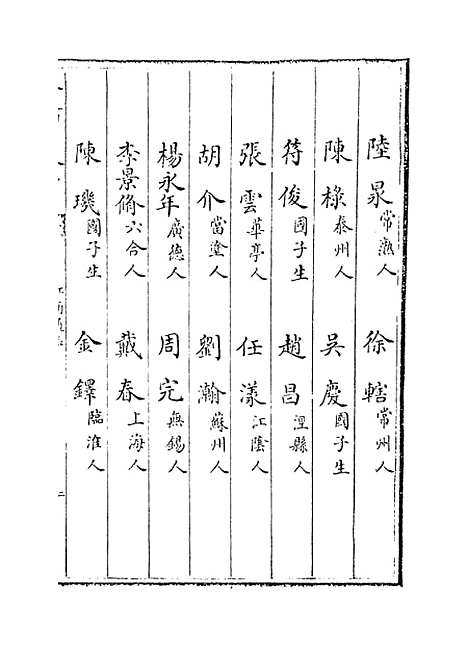 陸泉常熟人 徐轄常州人
陳祿泰州人 吳慶國子生
符俊國子生 趙昌涇縣人
張雲華亭人 任漾江陰人
胡介當塗人 劉瀚蘇州人
楊永年廣德人 周完無錫人
李景脩六合人 戴春上海人
陳璣國子生 金鐸臨淮人
二